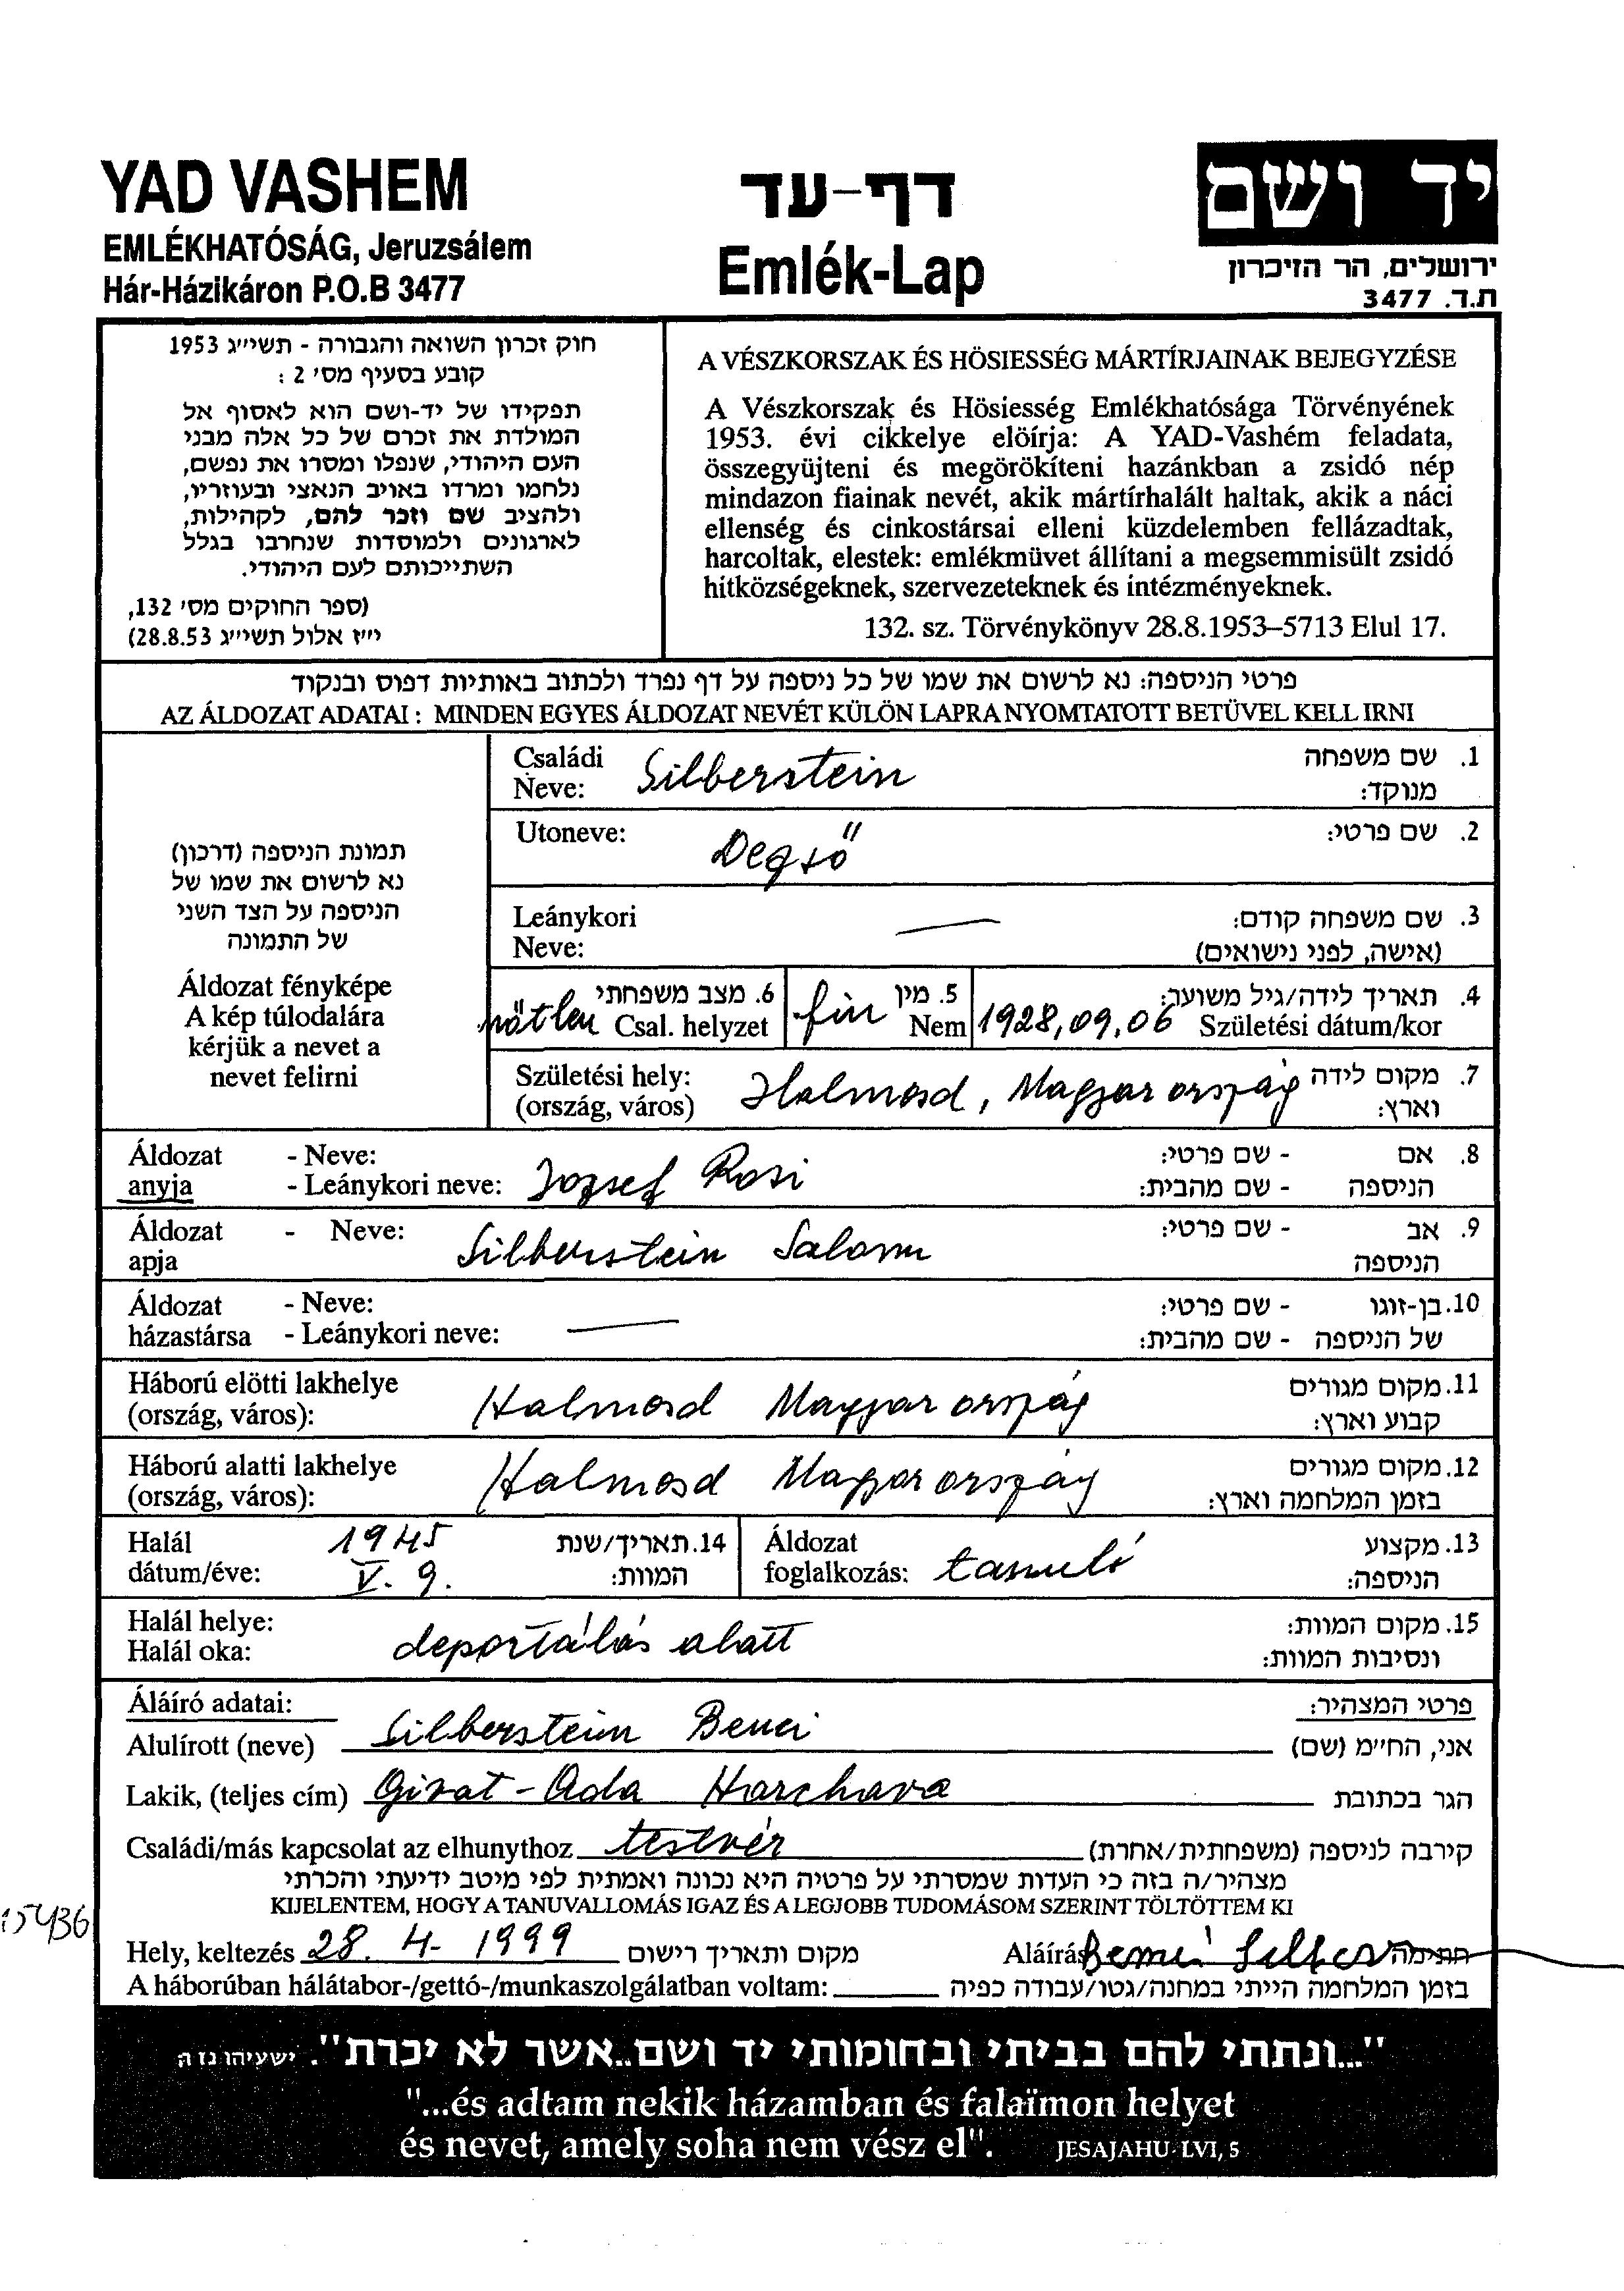 YAD VASHEM
EMLÉKHATÓSÁG, Jeruzsálem
Hár-Házikáron P.O.B 3477
דף-עד
Emlék-Lap
יד ושם
ירושלים, הר הזיכרון
ת.ד. 3477
חוק זכרון השואה והגבורה - תשי״ג 1953
קובע בסעיף מס׳ 2 :
תפקידו של יד-ושם הוא לאסוף אל
המולדת את זכרם של כל אלה מבני
העם היהודי, שנפלו ומסרו את נפשם,
נלחמו ומרדו באויב הנאצי ובעוזריו,
ולהציב שם וזכר להם, לקהילות,
לארגונים ולמוסדות שנחרבו בגלל
השתייכותם לעם היהודי.
(ספר החוקים מס׳ 132,
י״ז אלול תשי״ג 28.8.53)
A VÉSZKORSZAK ÉS HÖSIESSÉG MÁRTÍRJAINAK BEJEGYZÉSE
A Vészkorszak és Hösiesség Emlékhatósága Törvényének
1953. évi cikkelye elöírja: A YAD-Vashém feladata,
összegyüjteni és megörökíteni hazánkban a zsidó nép
mindazon fiainak nevét, akik mártírhalált haltak, akik a náci
ellenség és cinkostársai elleni küzdelemben fellázadtak,
harcoltak, elestek: emlékmüvet állítani a megsemmisült zsidó
hitközségeknek, szervezeteknek és intézményeknek.
132. sz. Törvénykönyv 28.8.1953–5713 Elul 17.
פרטי הניספה: נא לרשום את שמו של כל ניספה על דף נפרד ולכתוב באותיות דפוס ובנקוד
AZ ÁLDOZAT ADATAI : MINDEN EGYES ÁLDOZAT NEVÉT KÜLÖN LAPRA NYOMTATOTT BETÜVEL KELL IRNI
תמונת הניספה (דרכון)
נא לרשום את שמו של
הניספה על הצד השני
של התמונה
Áldozat fényképe
A kép túlodalára
kérjük a nevet a
nevet felirni
Családi Neve: Silberstein 1. שם משפחה מנוקד:
Utoneve: Degső 2. שם פרטי:
Leánykori Neve: — 3. שם משפחה קודם: (אישה, לפני נישואים)
nőtlen 6. מצב משפחתי Csal. helyzet fiú 5. מין Nem 1928,09,06 4. תאריך לידה/גיל משוער: Születési dátum/kor
Születési hely: (ország, város) Halmosd, Magyarország 7. מקום לידה וארץ:
Áldozat anyja - Neve: - Leánykori neve: Jozsef Rosi 8. אם הניספה - שם פרטי: - שם מהבית:
Áldozat apja - Neve: Silberstein Salamu 9. אב הניספה - שם פרטי:
Áldozat házastársa - Neve: - Leánykori neve: — 10. בן-זוגו של הניספה - שם פרטי: - שם מהבית:
Háború elötti lakhelye (ország, város): Halmosd Magyarország 11. מקום מגורים קבוע וארץ:
Háború alatti lakhelye (ország, város): Halmosd Magyarország 12. מקום מגורים בזמן המלחמה וארץ:
Halál dátum/éve: 1945 V. 9. 14. תאריך/שנת המוות: Áldozat foglalkozás: tanuló 13. מקצוע הניספה:
Halál helye: Halál oka: deportálás alatt 15. מקום המוות: ונסיבות המוות:
Áláíró adatai: פרטי המצהיר:
Alulírott (neve) Silberstein Benci אני, הח״מ (שם)
Lakik, (teljes cím) Givat-Ada Harchava הגר בכתובת
Családi/más kapcsolat az elhunythoz testvér קירבה לניספה (משפחתית/אחרת)
מצהיר/ה בזה כי העדות שמסרתי על פרטיה היא נכונה ואמתית לפי מיטב ידיעתי והכרתי
KIJELENTEM, HOGY A TANUVALLOMÁS IGAZ ÉS A LEGJOBB TUDOMÁSOM SZERINT TÖLTÖTTEM KI
15436
Hely, keltezés 28. 4- 1999 מקום ותאריך רישום Aláírás חתימה
A háborúban hálátabor-/gettó-/munkaszolgálatban voltam: בזמן המלחמה הייתי במחנה/גטו/עבודה כפיה
"...ונתתי להם בביתי ובחומותי יד ושם..אשר לא יכרת". ישעיהו נו ה
"...és adtam nekik házamban és falaïmon helyet
és nevet, amely soha nem vész el". JESAJAHU LVI, 5